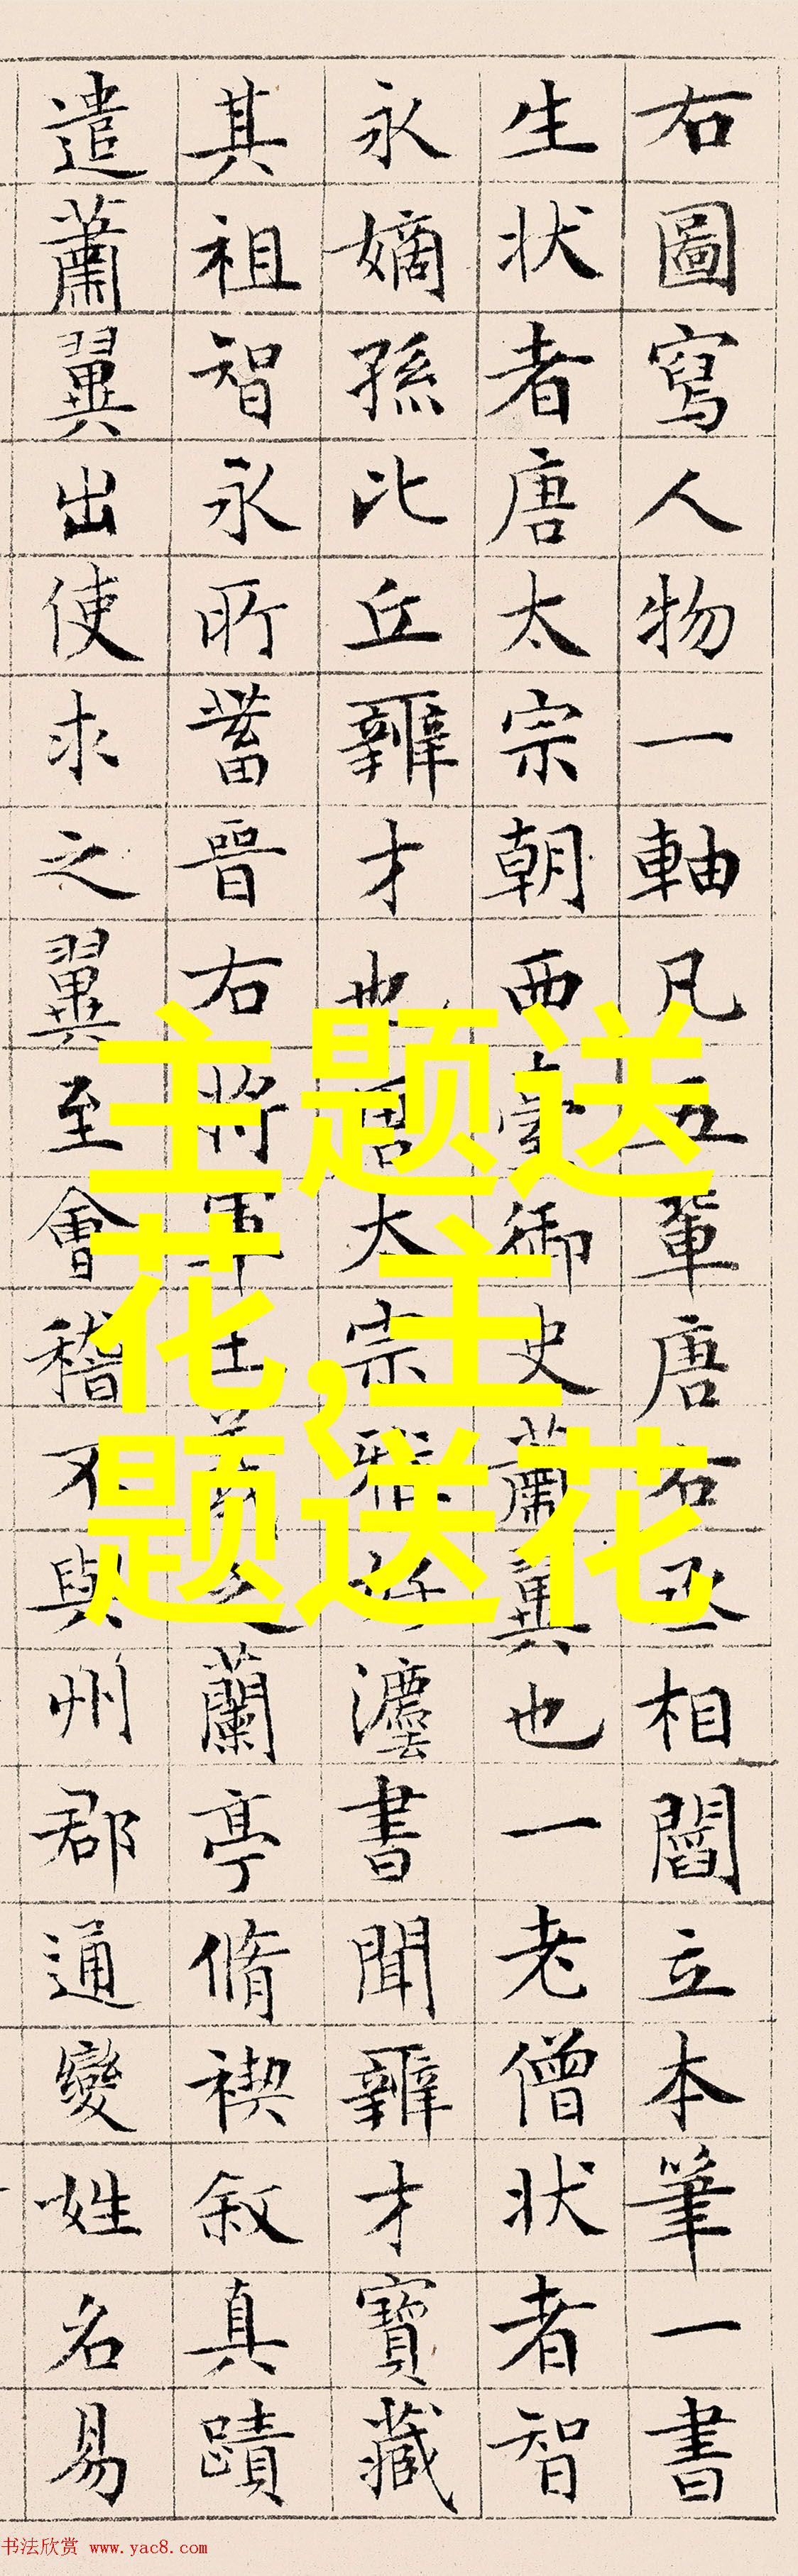 右圖寫人物一軸凡五輩唐右丞相閻立本筆一書
生状者唐太宗朝西臺御史蕭翼也一老僧状者智
永嫡孫比丘辨才也唐太宗雅好灋書聞辨才寶藏
其祖智永所蓄晉右將軍王羲之蘭亭脩禊叙真蹟
遣蕭翼出使求之翼至會稽不與州郡通變姓名易
主题送
花,主
题送花
书法欣赏 www.yac8.com